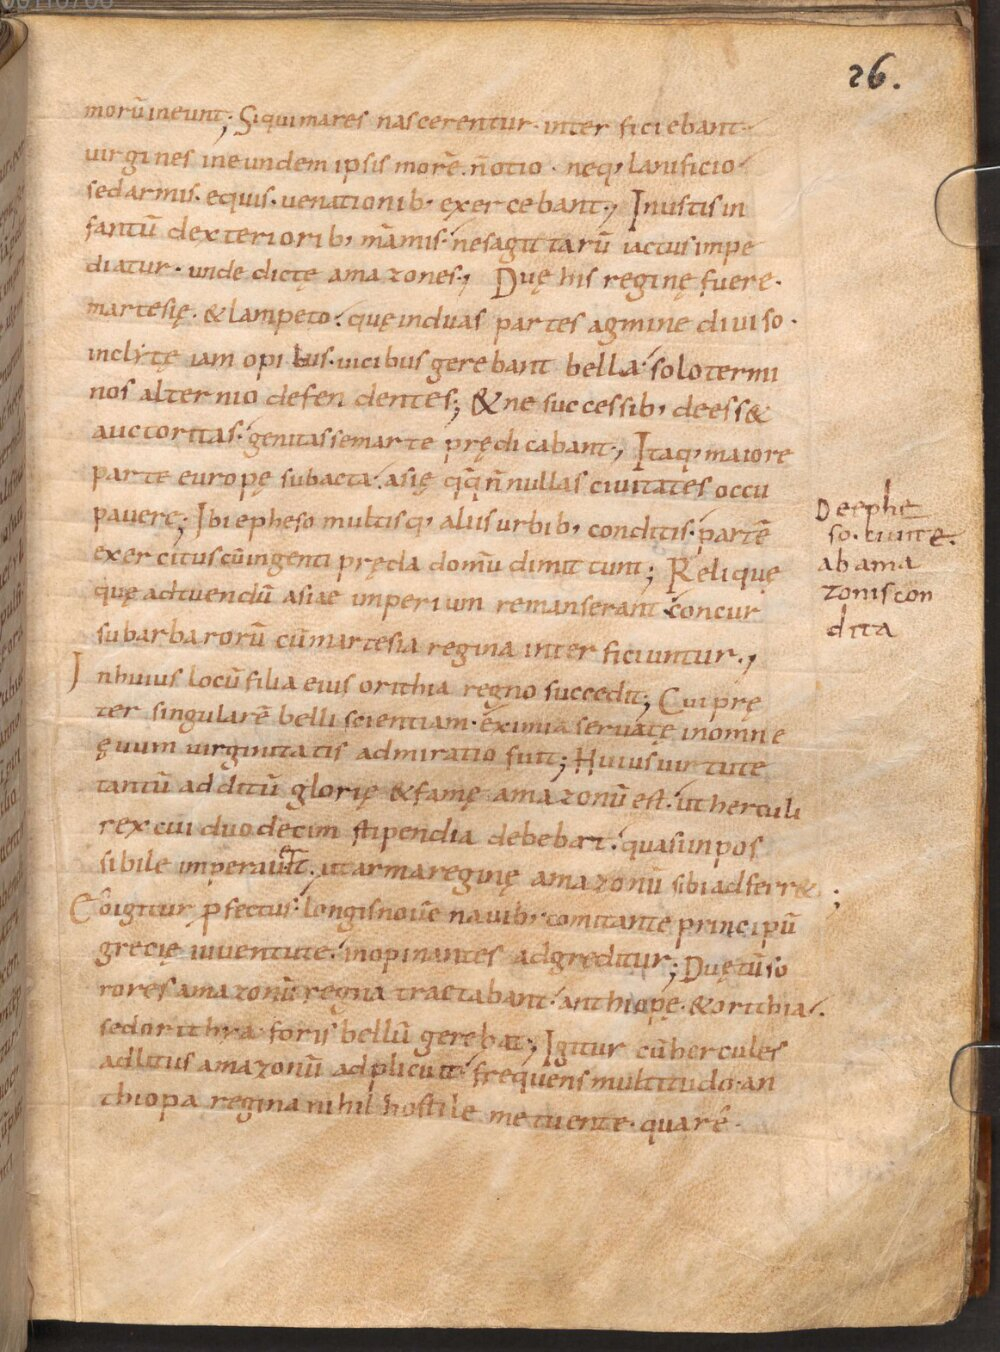 26.
morū ineunt; Siqui mares nascerentur· inter ficiebant·
uirgines ineundem ipsis morē. n̄ otio· neq; lanificio·
sed armis· equis· uenationib; exercebant·, Inustis in
fantū dexteriorib; māmis· ne sagittarū iactus impe
diatur· unde dictę amazones·, Duę his reginę fuere·
martesię· & lampeto· quę induas partes agmine diuiso·
inclytę iam opibus· uicibus gerebant bella· solo termi
nos alternio defendentes; & ne successib; deess&
auctoritas· genitas semarte prędicabant·, Itaq; maiore
parte europę subacta· asię qq̄ n̄nullas ciuitates occu
pauere; Ibi epheso multisq; aliis urbib; conditis· partē
exercitus cū ingenti pręda domū dimittunt; Relique
quę ad tuendū asiae imperium remanserant concur
su barbarorū cū martesia regina inter ficiuntur·,
In huius locū filia eius orithia regno succedit; Cui prę
ter singularē belli scientiam· eximia seruatę in omne
ęuum uirginitatis admiratio fuit; Huius uirtute
tantū additū glorię & famę amazonū est· ut herculi
rex cui duodecim stipendia debebat· quasi inpos
sibile imperauit· ut arma reginę amazonū sibi adferr&;
Eo igitur p̄fectus· longis nouē nauib; comitante principū
gręcię iuuentute· inopinantes adgreditur; Duę tū so
rores amazonū regna tractabant· anthiopę· & orithia·
sed orithya foris bellū gerebat; Igitur cū hercules
ad litus amazonū adplicuit· frequens multitudo· an
thiopa regina nihil hostile metuente· quarē·
De ephe
so· ciuite·
ab ama
zonis con
dita